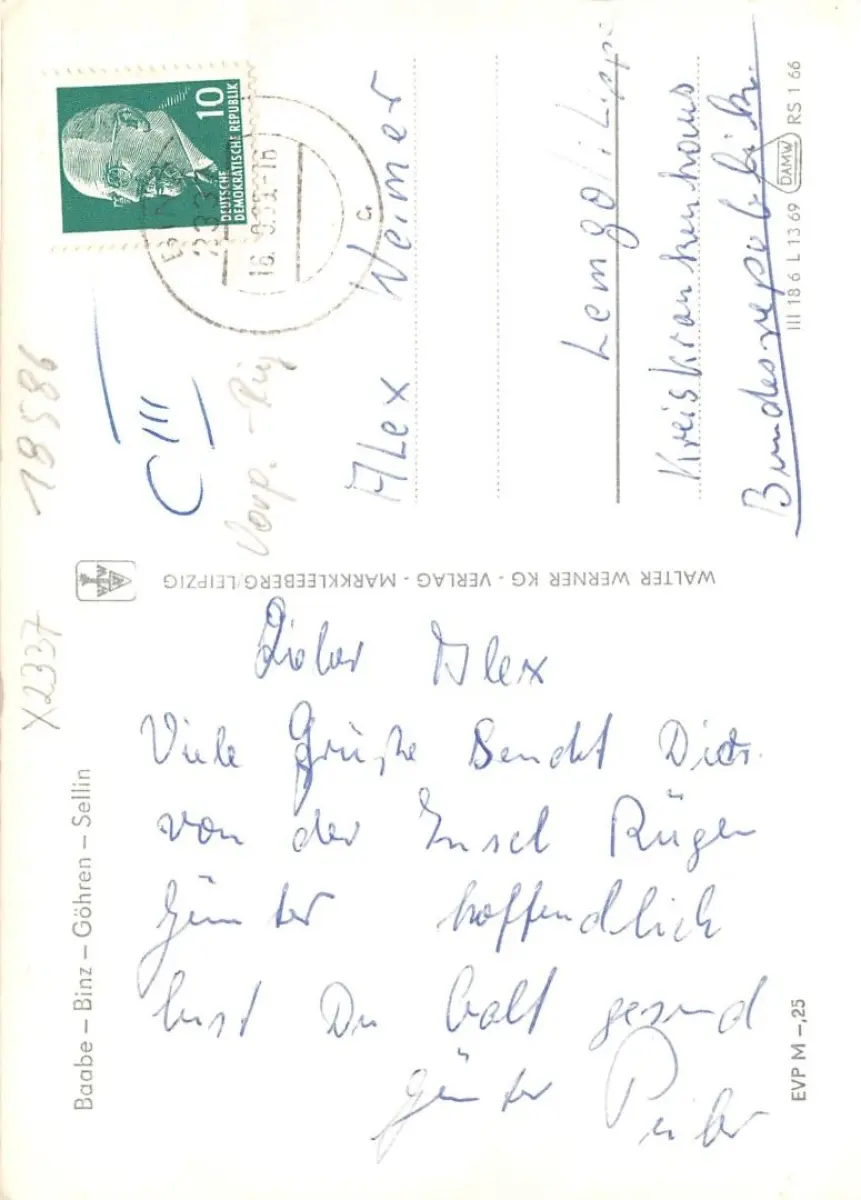 Baabe – Binz – Göhren – Sellin
Lieber Alex
Viele Grüße Sendet Dir
von der Insel Rügen
Günter hoffendlich
bist Du balt gesund
Günter
EVP M –,25
WALTER WERNER KG · VERLAG · MARKKLEEBERG/LEIPZIG
X2337
18586
C III
10
DEUTSCHE
DEMOKRATISCHE REPUBLIK
2337
Alex Weimer
Lemgo/Lippe
Kreiskrankenhaus
Bundesrepublik
III 18 6 L 13 69 DAMW RS 1 66